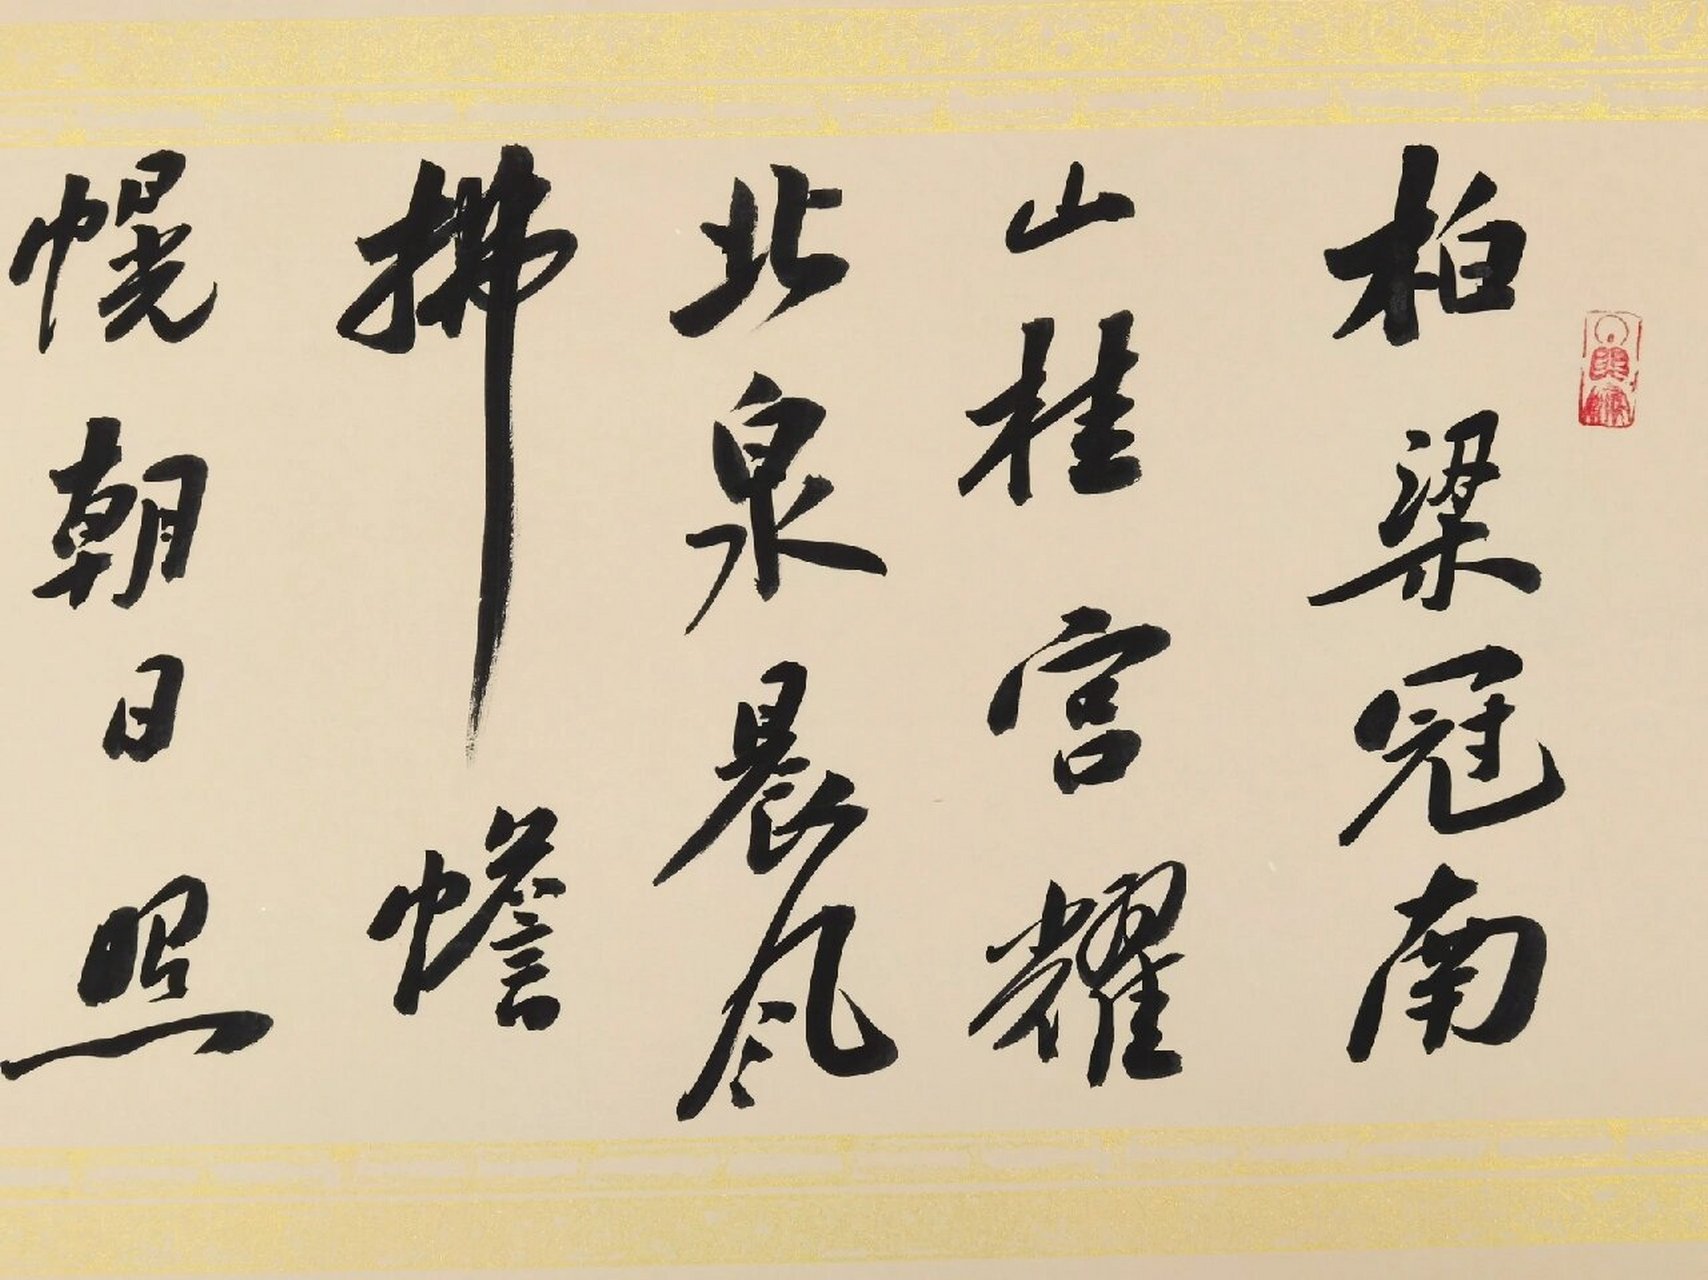 柏梁冠南
山桂宫耀
北泉晨风
拂幨
幌朝日照